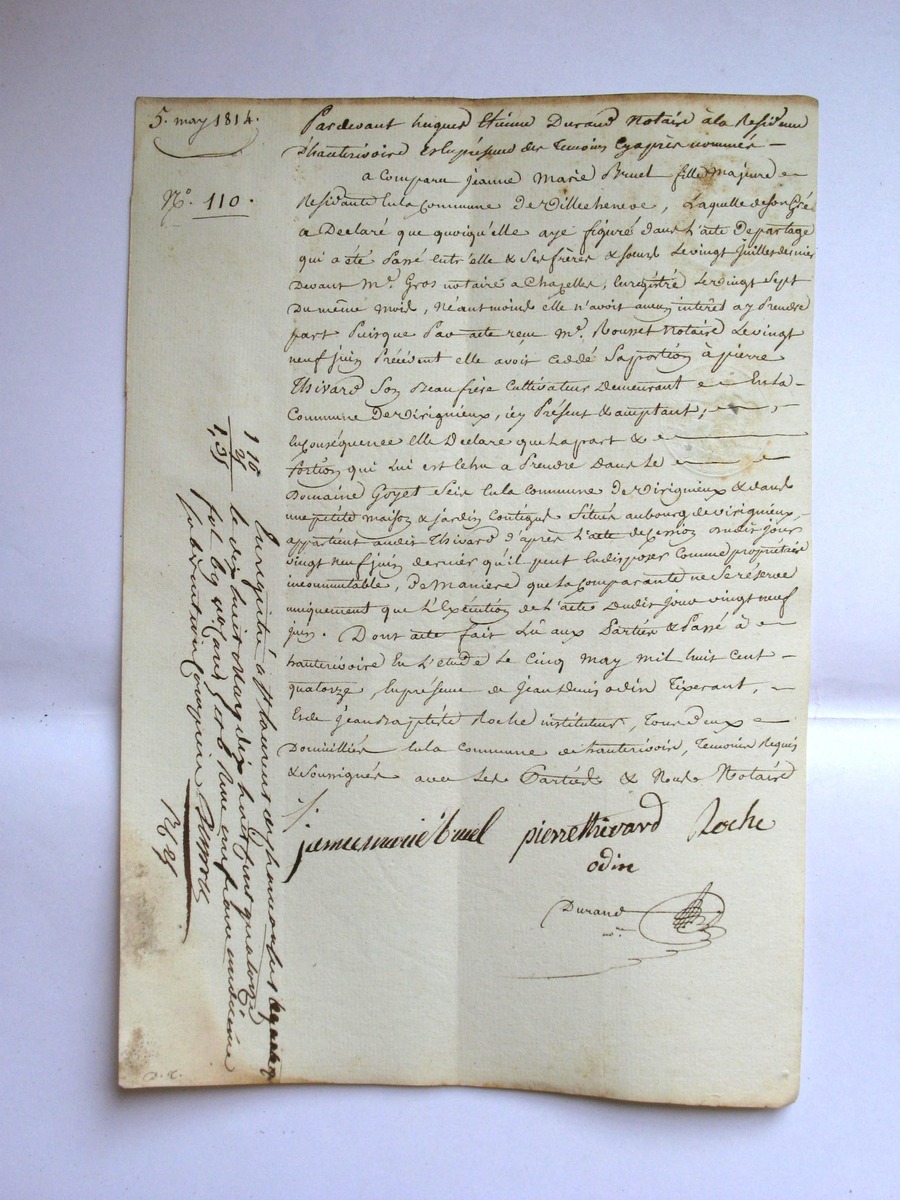 5. may 1814.
N.º 110.
Pardevant hugues Etienne Durand Notaire à la Residence
d'hauterivoire en la présence des Temoins cy après nommés —
a Comparu jeanne Marie Bruel fille Majeure
Residante en la commune de Villecheneve, Laquelle de son Gré
a Declaré que quoiqu'elle aye figuré dans l'acte de partage
qui a été Passé entr'elle & Ses frères & soeurs Le vingt juillet dernier
Devant M.e Gros notaire a Chazelles, Enregistré Le vingt Sept
Du même mois, Néantmoins elle n'avoit aucun interêt a y Prendre
part Puisque Par acte reçu M.e Rousset Notaire Le vingt
neuf juin Précédent elle avoit cedde Sa portion à pierre
Thivard Son Beaufrère Cultivateur Demeurant En La
Commune De virigneux, icy Présent & acceptant,
En Conséquence Elle Declare que La part &
Portion qui Lui est échu a Prendre Dans Le
Domaine Goyet Scis en la Commune De virigneux & dans
une petite maison & jardin Contigue Située au bourg de virigneux,
appartient audit Thivard d'après L'acte de Cession Dudit jour
vingt neuf juin dernier qu'il peut En disposer Comme propriétaire
incommutable, De Maniere que La Comparante ne Se réserve
uniquement que L'Exécution de L'acte Dudit jour vingt neuf
juin. Dont acte fait Lû aux Parties & Passé à
hauterivoire En L'etude Le Cinq May Mil huit Cent
quatorze, En présence de jean Denis odin Tixerant,
Et de jean Baptiste Roche instituteur, Tous Deux
Domiciliés en la Commune de hauterivoire, Temoins Requis
& Soussignés avec Les Parties & Nous Notaire
jeanne marie bruel pierre thivard Roche
odin
Durand
no.re
Enregistré à St Laurent de chamousset
le dix huit May dix huit cent quatorze
reçu un franc
subvention comprise
1 10